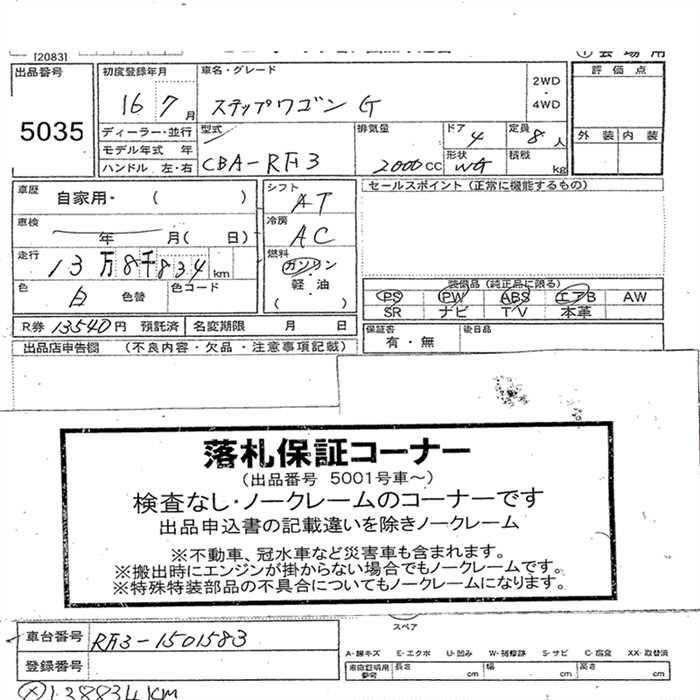 [2083]
会場用
出品番号
5035
初度登録年月
16 7 月
車名・グレード
ステップワゴン G
2WD
・
4WD
評価点
外装 内装
ディーラー・並行
モデル年式 年
ハンドル 左・右
型式
CBA-RF3
排気量
2000 CC
ドア
4
形状
WG
定員
8 人
積載
kg
車歴
自家用・ ( )
車検
年 月( 日)
走行
13万8千834 km
色
白 色替
色コード
R券 13540円 預託済
名変期限 月 日
シフト
AT
冷房
AC
燃料
ガソリン
・
軽・油
( )
セールスポイント (正常に機能するもの)
装備品 (純正品に限る)
PS PW ABS エアB AW
SR ナビ TV 本革
保証書
有・無
後日品
出品店申告欄 (不良内容・欠品・注意事項記載)
落札保証コーナー
(出品番号 5001号車～)
検査なし・ノークレームのコーナーです
出品申込書の記載違いを除きノークレーム
※不動車、冠水車など災害車も含まれます。
※搬出時にエンジンが掛からない場合でもノークレームです。
※特殊特装部品の不具合についてもノークレームになります。
スペア
車台番号
RF3-1501583
登録番号
A・線キズ E・エクボ U・凹み W・補修跡 S・サビ C・腐食 XX・取替済
車庫証明用
参考
長さ cm 幅 cm 高さ cm
138834km